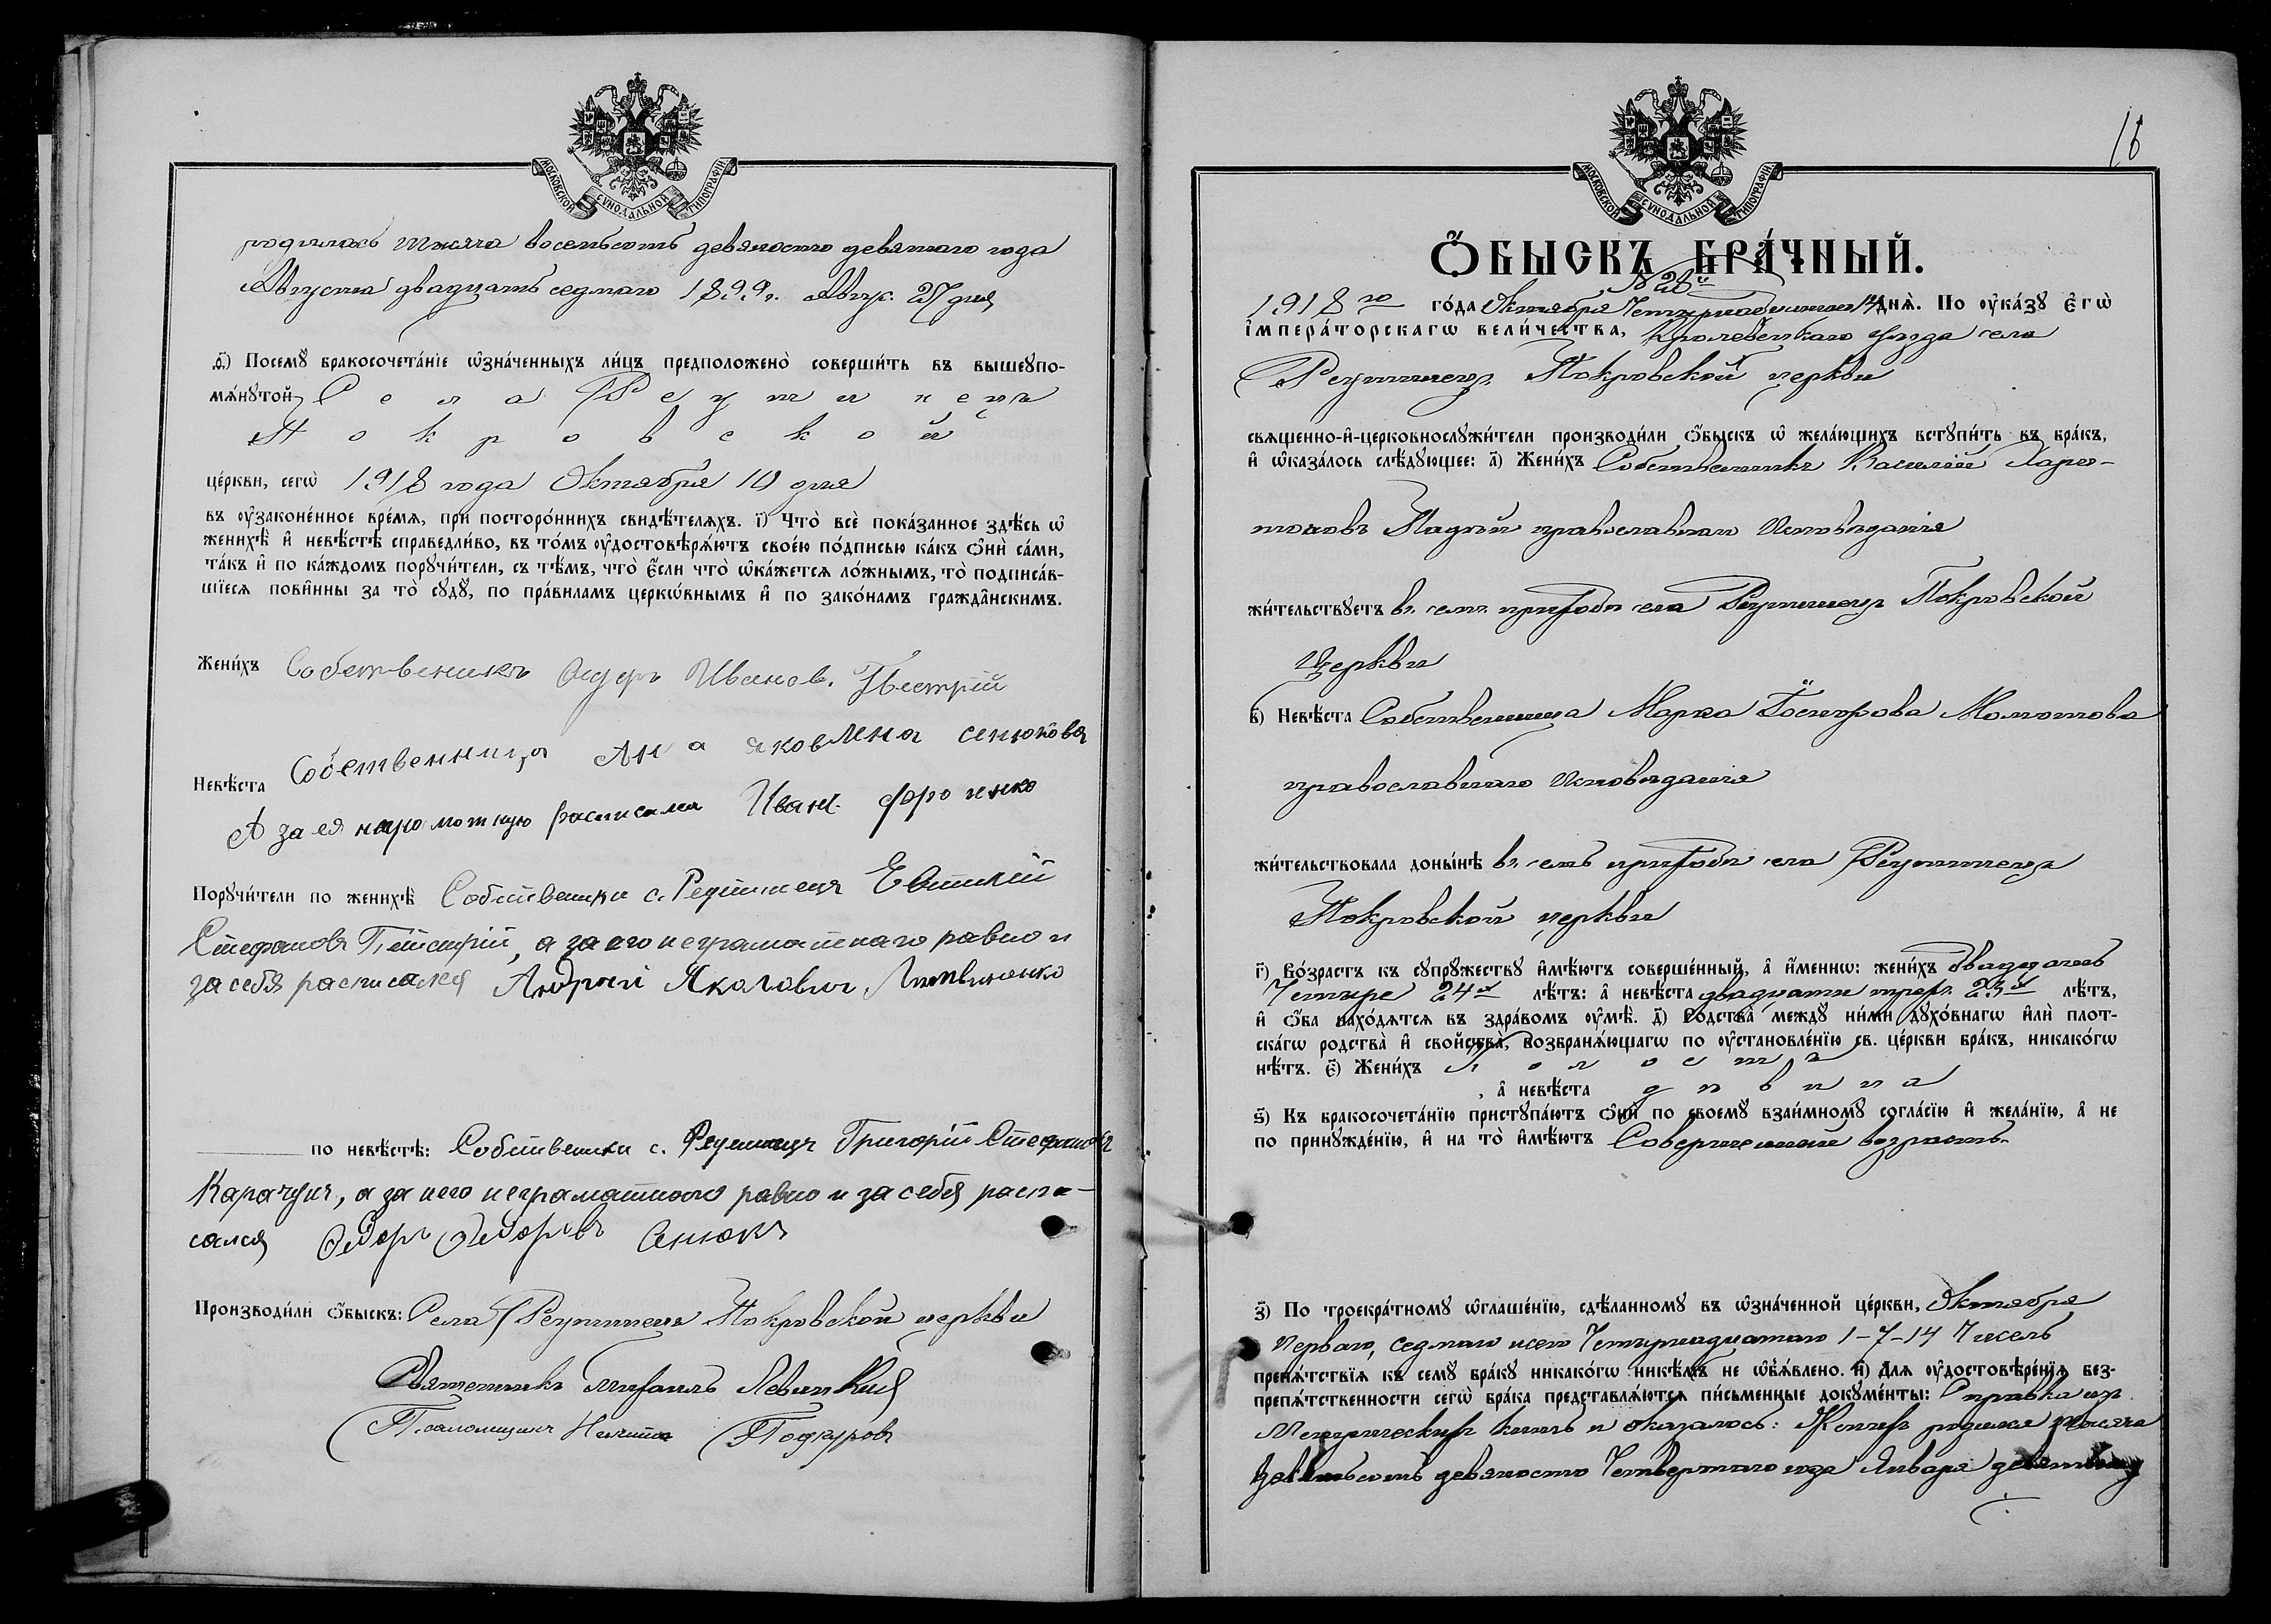 МОСКОВСКОЙ СѴНОДАЛЬНОЙ ТИПОГРАФІИ
родилась тысяча восемьсотъ девяносто девятаго года
Августа двадцать седмаго 1899 г. Авгус. 27 дня
д҃) Посемꙋ бракосочета́нїе ѡ҆зна́ченныхъ ли́цъ предположено̀ соверши́ть въ вышеꙋпо-
мѧ́нꙋтой Села Реутинецъ
Покровской
це́ркви, сегѡ̀ 1918 года Октября 10 дня
въ ᲂу҆законе́нное вре́мѧ, при посторо́ннихъ свидѣ́телѧхъ. і҃) Что̀ всѐ пока́занное здѣ́сь ѡ҆
женихѣ̀ и҆ невѣ́стѣ справедли́во, въ то́мъ ᲂу҆достовѣрѧ́ютъ свое́ю по́дписью ка́къ ѻ҆нѝ са́ми,
та́къ и҆ по ка́ждомъ порꙋчи́тели, съ тѣ́мъ, что̀ є҆́сли что̀ ѡ҆ка́жетсѧ ло́жнымъ, то̀ подписа́в-
шїесѧ пови́нны за то̀ сꙋдꙋ̀, по пра́виламъ церко́внымъ и҆ по зако́намъ гражда́нскимъ.
Жени́хъ Собственикъ Федеръ Иванов.
Невѣ́ста Собственница Ана яковлена сенюкова
А за ея неграмотную расписался Иванъ
Порꙋчи́тели по женихѣ̀ Собственики с. Реутинецъ Евтихій
Стефановъ а за его неграматнаго равно и
за себя расписался Андрей Яколович Литвиненко
по невѣ́стѣ: Собственики с. Реутинецъ Григорій Стефановъ
Карачунъ, а за него неграматного равно и за себя распи-
сался Федоръ Федоровъ Сенюкъ
Производи́ли ѻ҆́быскъ: Села Реутинецъ Покровской церкви
Священникъ Михаилъ Левицкій
Псаломщикъ Никита Подгуровъ
16
МОСКОВСКОЙ СѴНОДАЛЬНОЙ ТИПОГРАФІИ
Ѻ҆́БЫСКЪ БРА́ЧНЫЙ.
№ 28й
1918 го го́да Октября Четырнадцатаго 14 днѧ̀. По ᲂу҆ка́зꙋ є҆гѡ̀
і҆мпера́торскагѡ вели́чества, Кролевецкаго уѣзда села
Реутинецъ Покровской церкви
свѧще́нно-и҆-церковнослꙋжи́тели производи́ли ѻ҆́быскъ ѡ҆ жела́ющихъ встꙋпи́ть въ бра́къ,
и҆ ѡ҆каза́лось слѣ́дꙋющее: а҃) Жени́хъ Собственникъ Василій Хари-
тоновъ православнаго Исповѣданія
жи́тельствꙋетъ въ семъ приходѣ села Реутинецъ Покровской
Церкви
в҃) Невѣ́ста Собственница Марѳа
православнаго Исповѣданія
жи́тельствовала донынѣ въ семъ приходѣ села Реутинецъ
Покровской церкви
г҃) Во́зрастъ къ сꙋпрꙋжествꙋ и҆мѣ́ютъ соверше́нный, а҆ и҆́менно: жени́хъ двадцать
Четыре 24 лѣ́тъ: а҆ невѣ́ста двадцати трехъ 23 лѣ́тъ,
и҆ ѻ҆́ба нахо́дѧтсѧ въ здра́вомъ ᲂу҆мѣ̀. д҃) Родства̀ междꙋ ни́ми дꙋхо́внагѡ и҆лѝ плот-
ска́гѡ родства̀ и҆ свойства̀, возбранѧ́ющагѡ по ᲂу҆становле́нїю св. це́ркви бра́къ, никако́гѡ
нѣ́тъ. є҃) Жени́хъ холостъ
, а҆ невѣ́ста дѣвица
ѕ҃) Къ бракосочета́нїю пристꙋпа́ютъ ѻ҆нѝ по своемꙋ̀ взаи́мномꙋ согла́сїю и҆ жела́нїю, а҆ не
по принꙋжде́нїю, и҆ на то̀ и҆мѣ́ютъ Совершенный возрастъ
з҃) По троекра́тномꙋ ѡ҆глаше́нїю, сдѣ́ланномꙋ въ ѡ҆зна́ченной це́ркви, Октября
перваго, седмаго и сего Четырнадцатаго 1-7-14 Чиселъ
препѧ́тствїѧ къ семꙋ̀ бра́кꙋ никако́гѡ никѣ́мъ не ѡ҆б̾ѧ́влено. и҃) Для ᲂу҆достовѣре́нїѧ без-
препѧ́тственности сегѡ̀ бра́ка представлѧ́ютсѧ пи́сьменные докꙋме́нты: Справка изъ
Метрическихъ книгъ и оказалось: Женихъ родился тысяча
восемьсотъ девяносто Четвертаго года Января